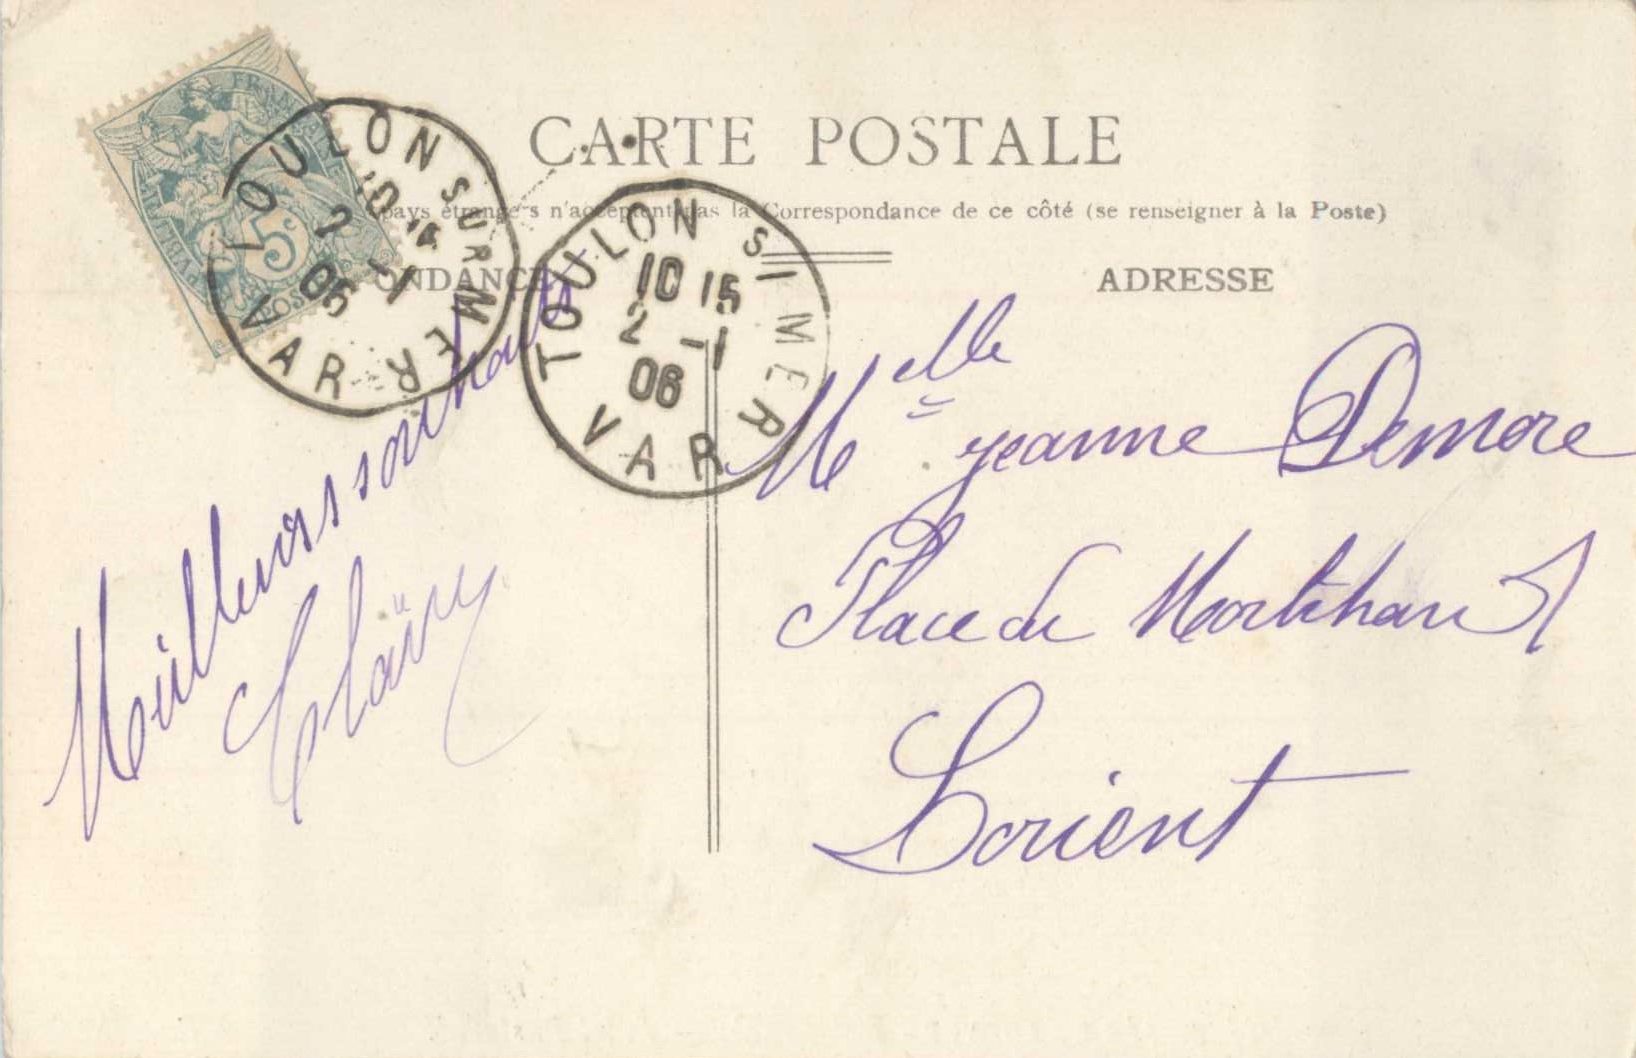 CARTE POSTALE
pays étrangers n'acceptent pas la Correspondance de ce côté (se renseigner à la Poste)
ONDANCE
ADRESSE
5c
TOULON SUR MER
VAR
2 -1
TOULON S MER
10 15
2 -1
06
VAR
Meilleurs souhaits
Claïry
Melle jeanne Demore
Place du Morbihan 
Lorient